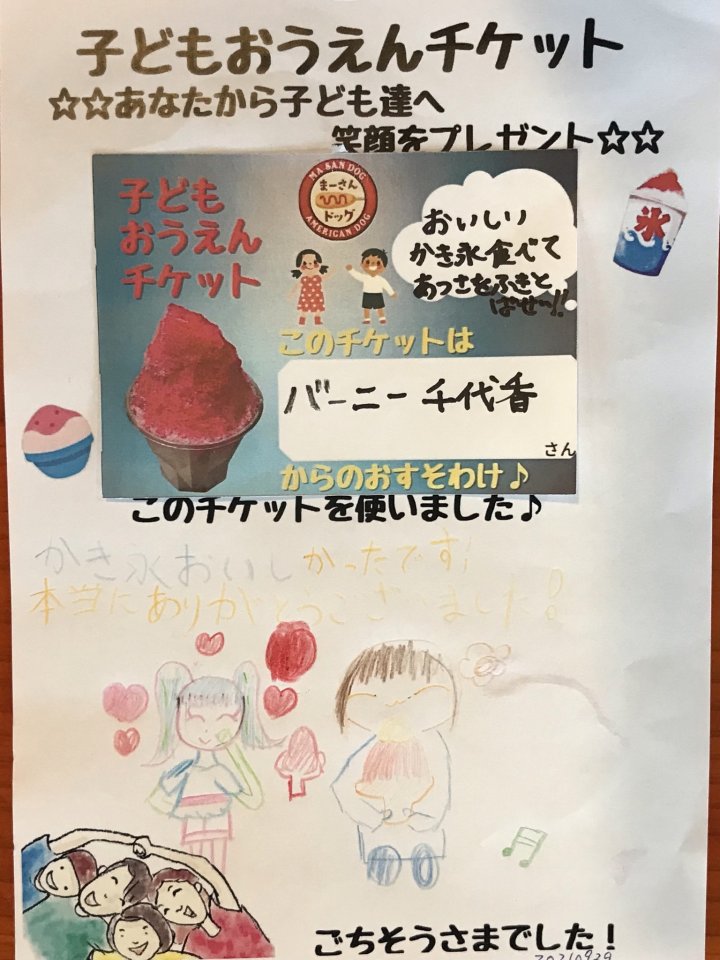 子どもおうえんチケット
☆☆あなたから子ども達へ
笑顔をプレゼント☆☆
子ども
おうえん
チケット
MA SAN DOG
まーさん
ドッグ
AMERICAN DOG
おいしい
かき氷食べて
あっさをふきと
ばせ〜!!
氷
このチケットは
バーニー 千代香
さん
からのおすそわけ♪
このチケットを使いました♪
かき氷おいしかったです!
本当にありがとうございました!
ごちそうさまでした!
20210929